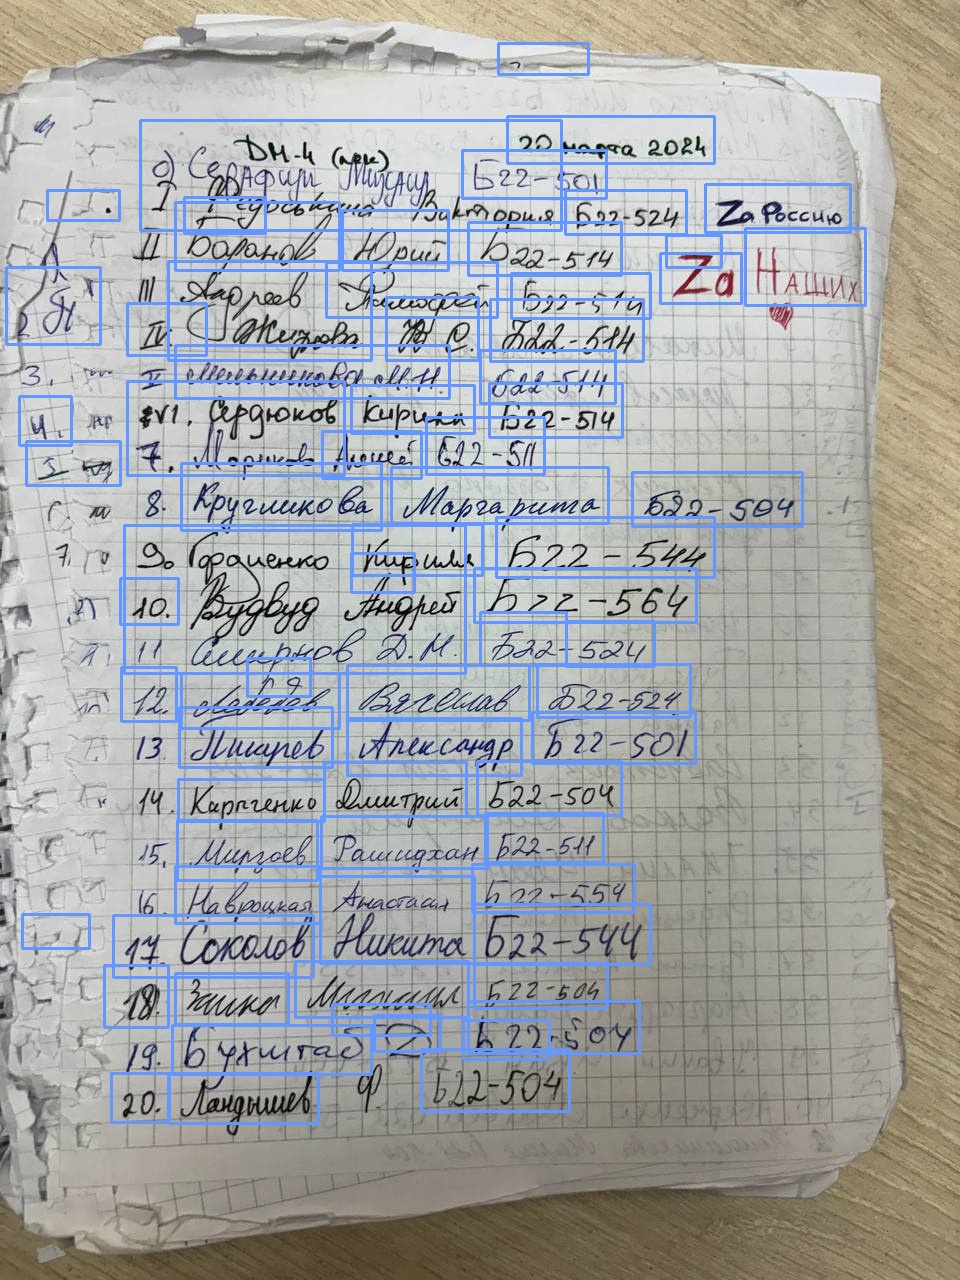 ДМ-4 (лек) 20 марта 2024
0) Серафим Михаил Б22-501
I Федоськина Виктория Б22-524 Zа Россию
II Баранов Юрий Б22-514 Zа Наших
III Андреев Тимофей Б22-514
IV. Жизнова Б22-514
V Мельникова М.Н. Б22-514
VI. Сердюков Кирилл Б22-514
7. Марков Б22-511
8. Кругликова Маргарита Б22-504
9. Гордиенко Кирилл Б22-544
10. Вудвуд Андрей Б22-564
11 Смирнов Д.М. Б22-524
12. Вячеслав Б22-524
13. Писарев Александр Б22-501
14. Карпченко Дмитрий Б22-504
15. Мирзоев Рашидхан Б22-511
16. Навроцкая Анастасия Б22-554
17. Соколов Никита Б22-544
18. Заика Михаил Б22-504
19. Бухштаб Б22-504
20. Ландышев Ф Б22-504
3.
4.
5
7.